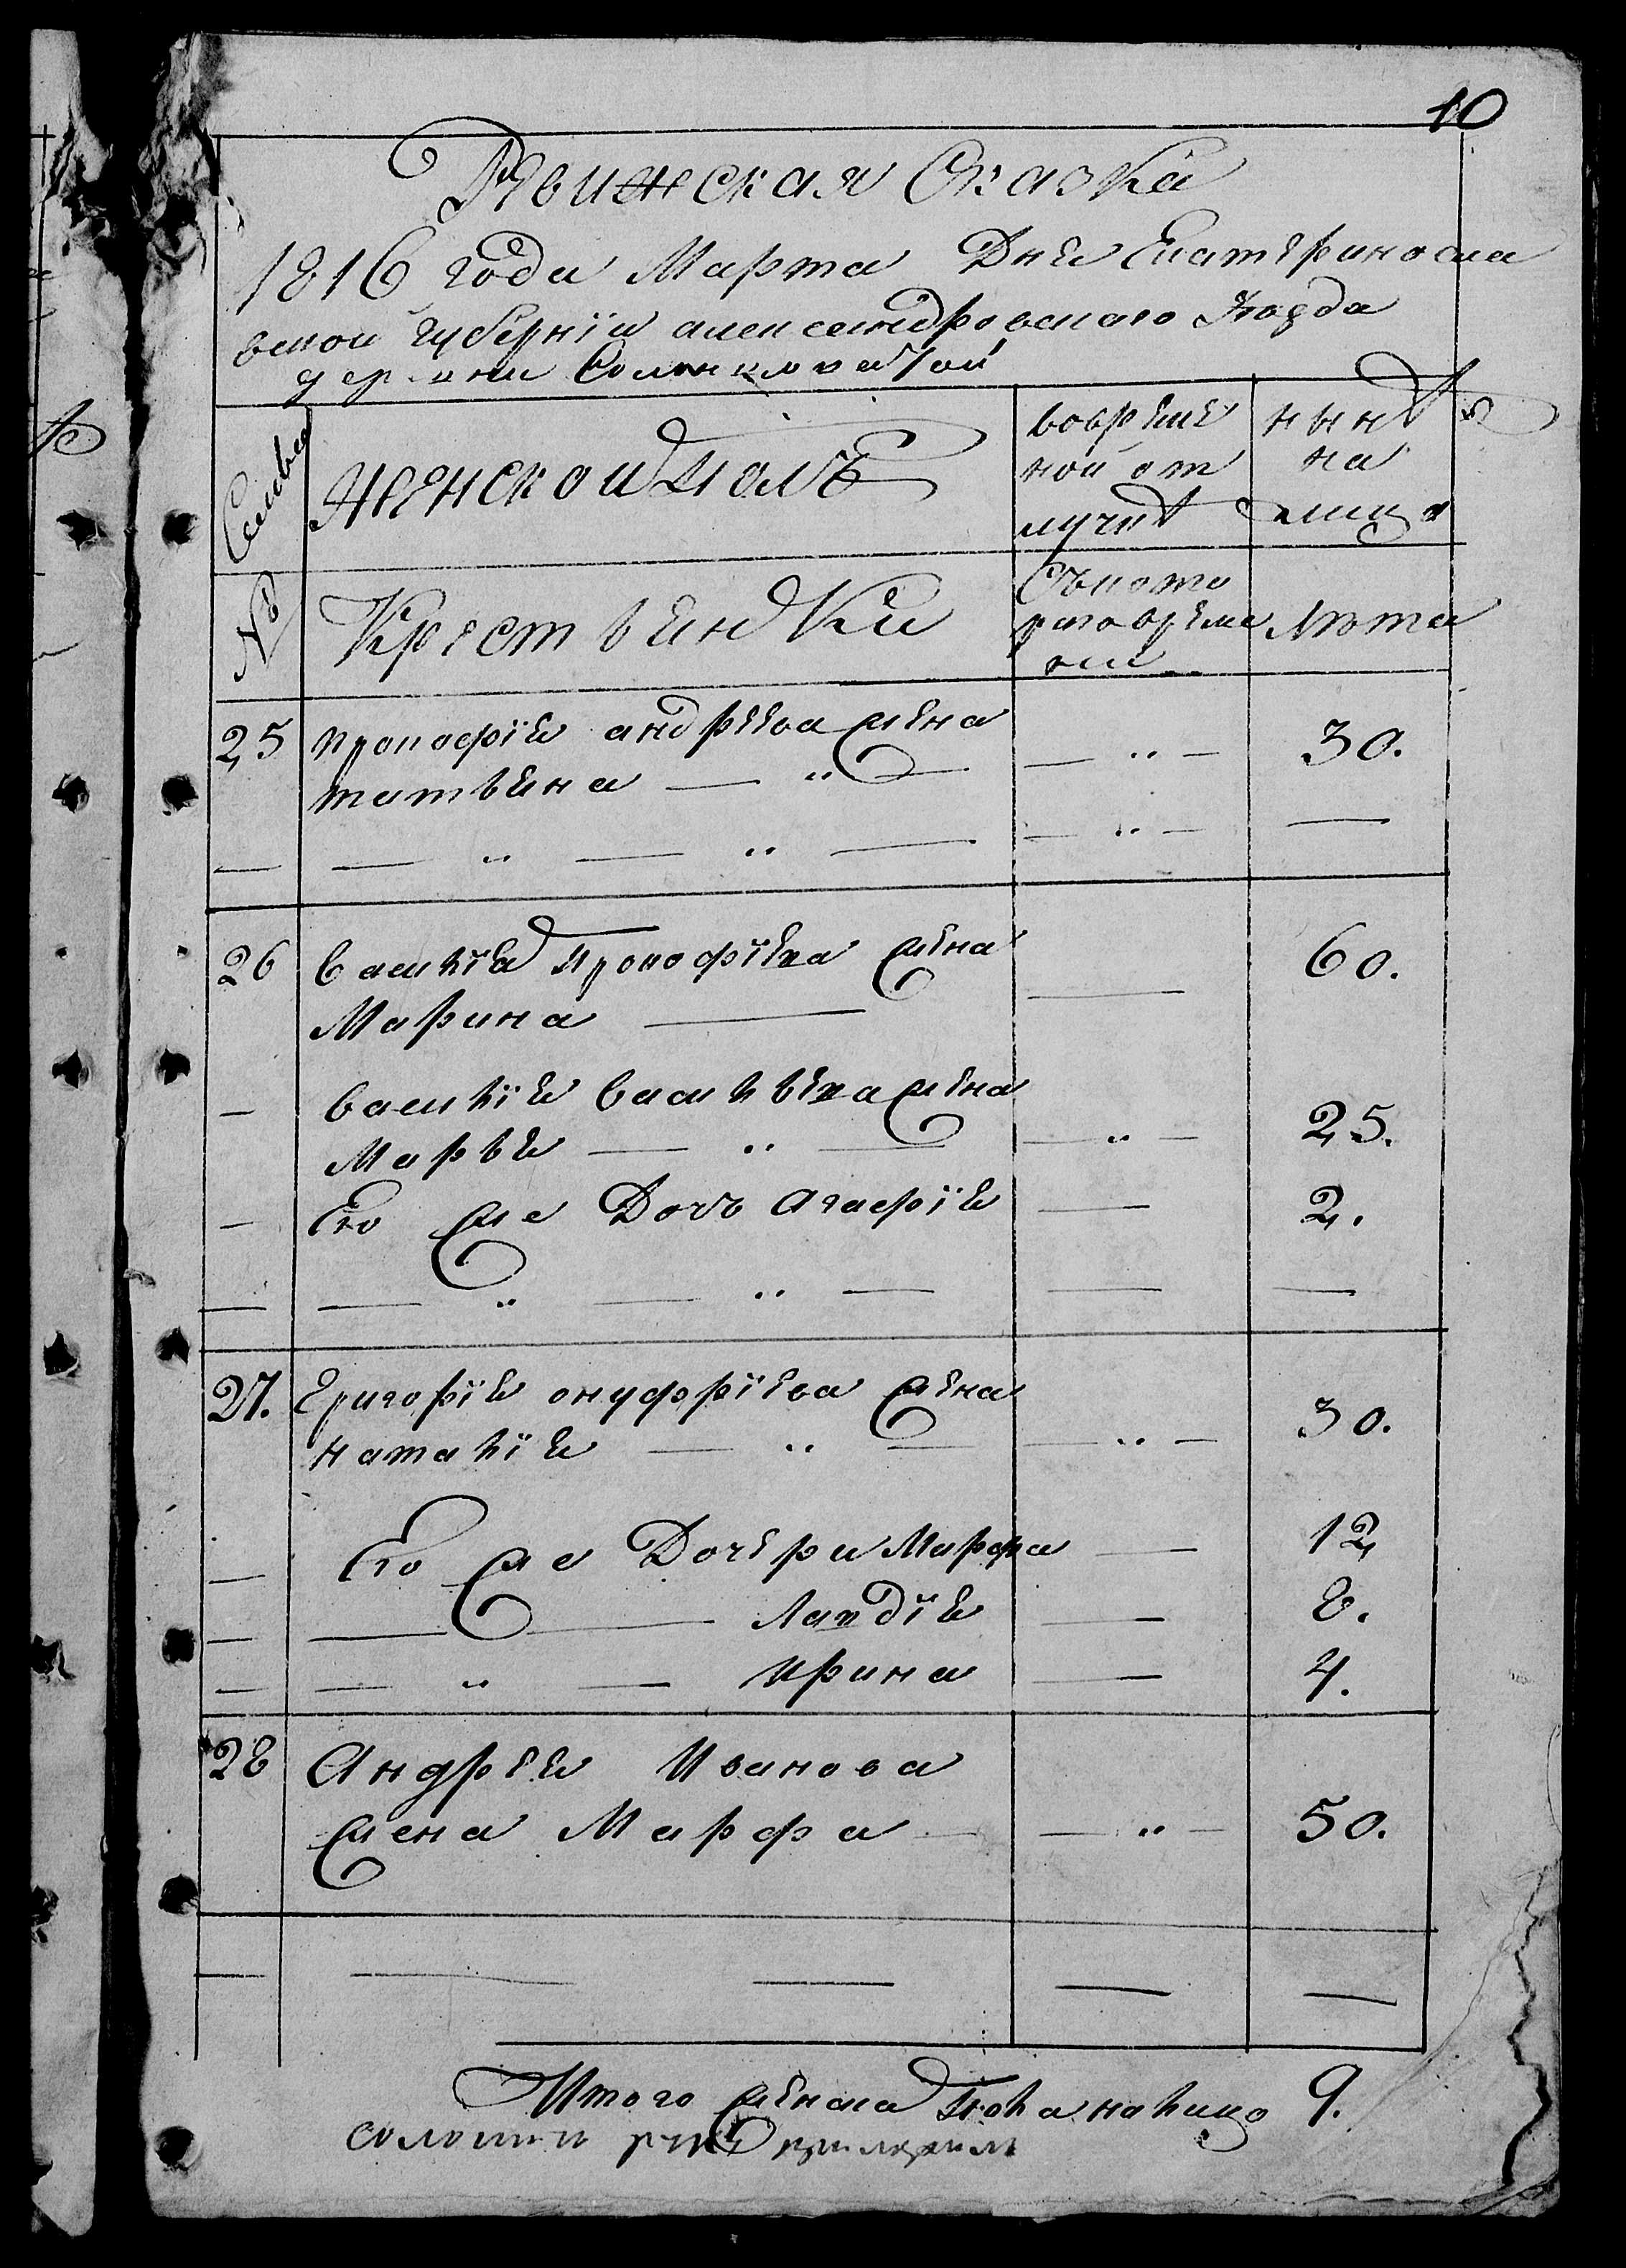 10
Ревижская Сказка
1816 года Марта Дня Екатериносла
вской губернїи александровскаго уезда
деревни Солонцоватой
Семьи женской полъ вовреме нынѣ
ной от на
лучкѣ лицо
№ Крестьянки Съкото
раговреме Лѣта
ни
25 прокофїя андреева жена
татьяна — " — — " — 30.
— — " — " — — " — —
26 василїя прокофїева жена 60.
Марина — —
— василїя васильева жена
Марья — " — — " — 25.
— Его же Дочь Агафїя — 2.
— — " — " — — —
27. Григорїя онуфрїева жена
наталїя — " — — " — 30.
— Его же Дочери Марфа — 12
— — — — 8.
— — " — Ирина — 4.
28 Андрея Иванова
жена Марфа — — " — 50.
— — — — —
Итого женска пола налицо 9.